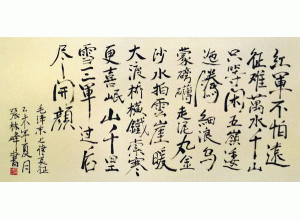 紅軍不怕遠
征難萬水千山
只等闲五嶺逶
迤騰細浪烏
蒙磅礴走泥丸金
沙水拍雲崖暖
大渡桥横鐵索寒
更喜岷山千里
雪三軍过后
尽開顔
毛泽东七律長征
乙未年夏月